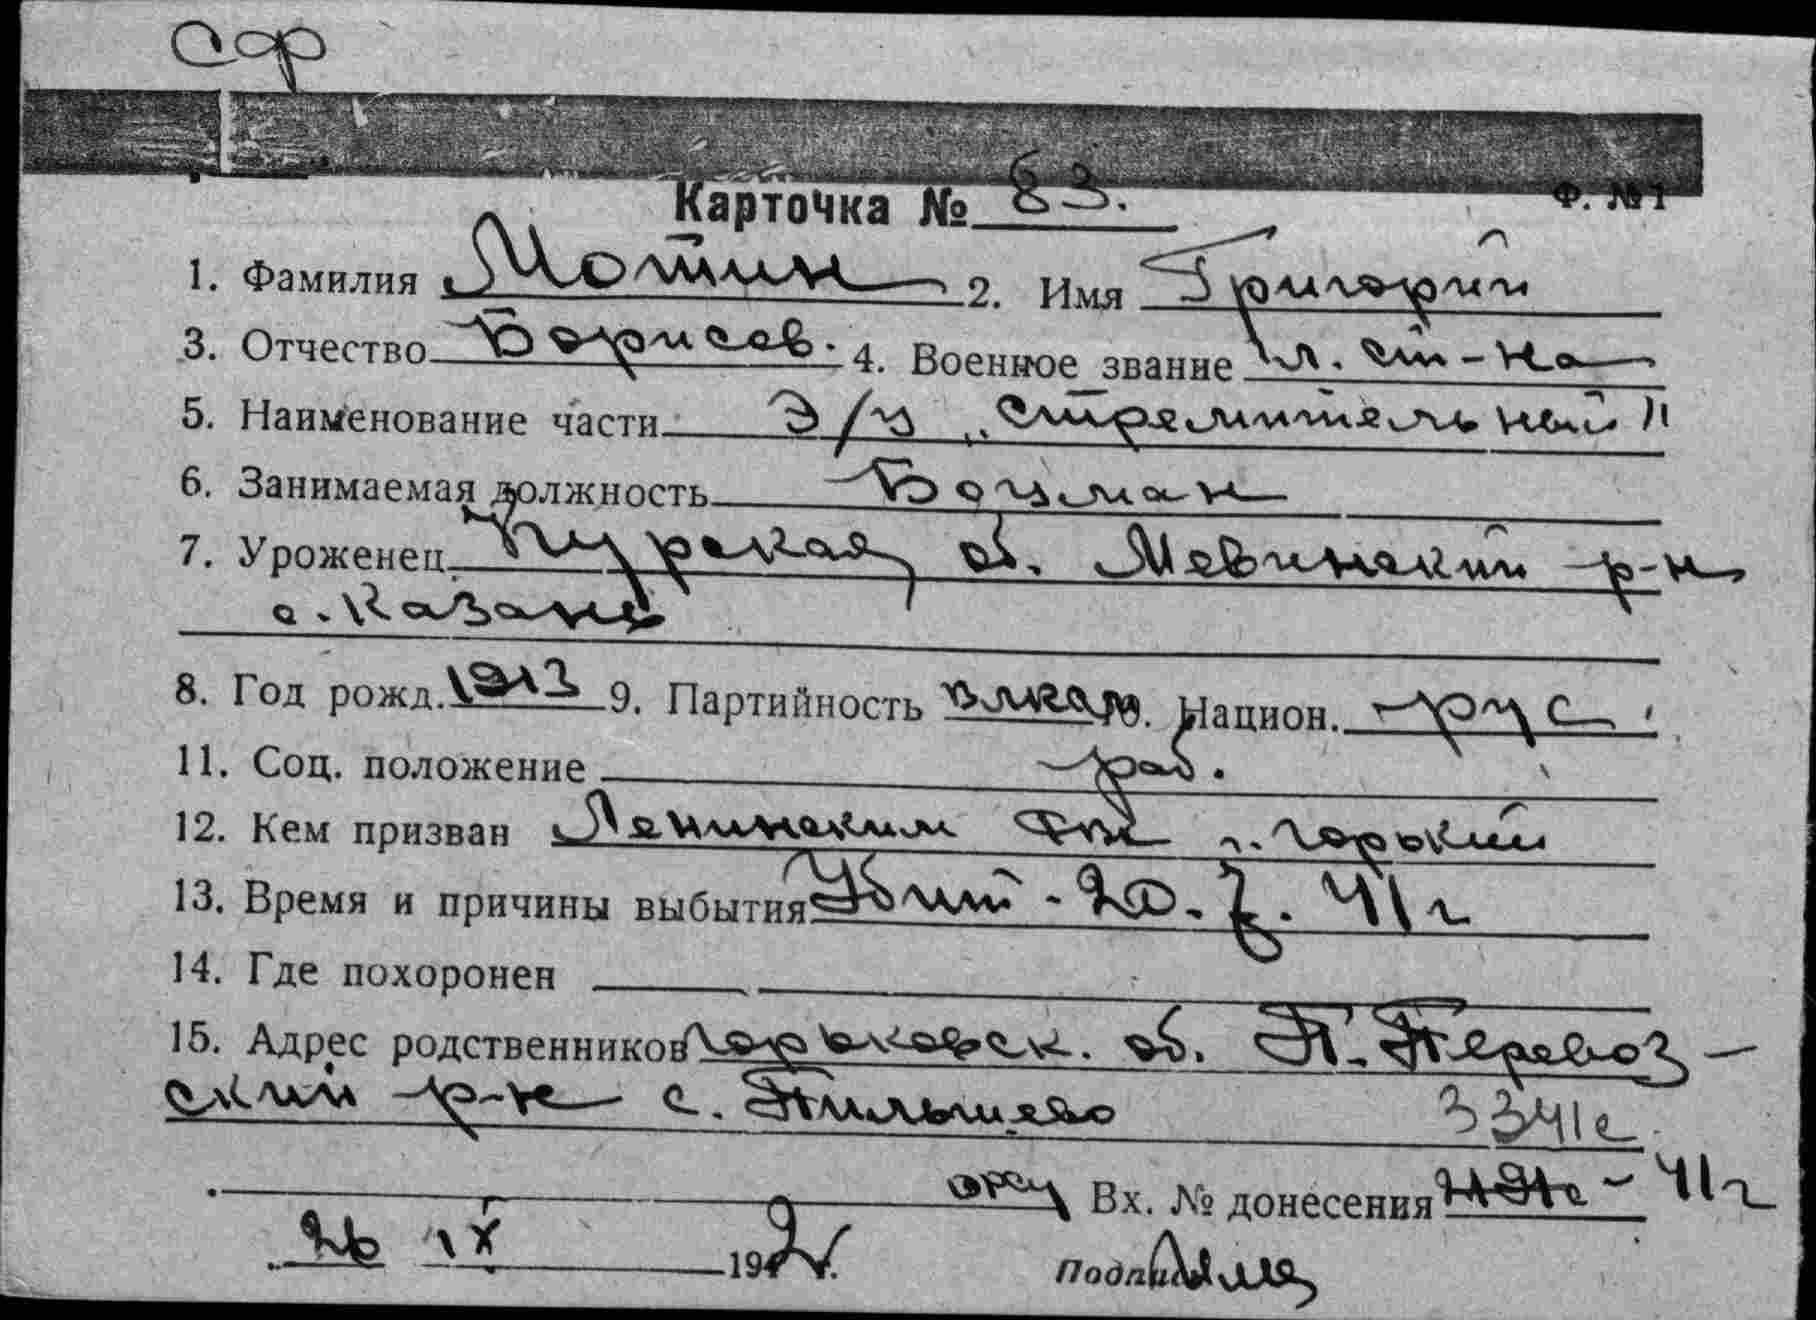 Сф
Карточка № 83. Ф. №1
1. Фамилия Мотин 2. Имя Григорий
3. Отчество Борисов. 4. Военное звание гл. ст-на
5. Наименование части Э/м „Стремительный"
6. Занимаемая должность Боцман
7. Уроженец Курская об. Мевинский р-н
с. Казань
8. Год рожд. 1913 9. Партийность 10. Национ. рус.
11. Соц. положение раб.
12. Кем призван Ленинским РВК г. Горький
13. Время и причины выбытия Убит - 20.7.41 г
14. Где похоронен
15. Адрес родственников Горьковск. об. П. Перевоз-
ский р-н с. Пильшево
3341с
Вх. № донесения - 41 г
26 IX 1942 г. Подпись